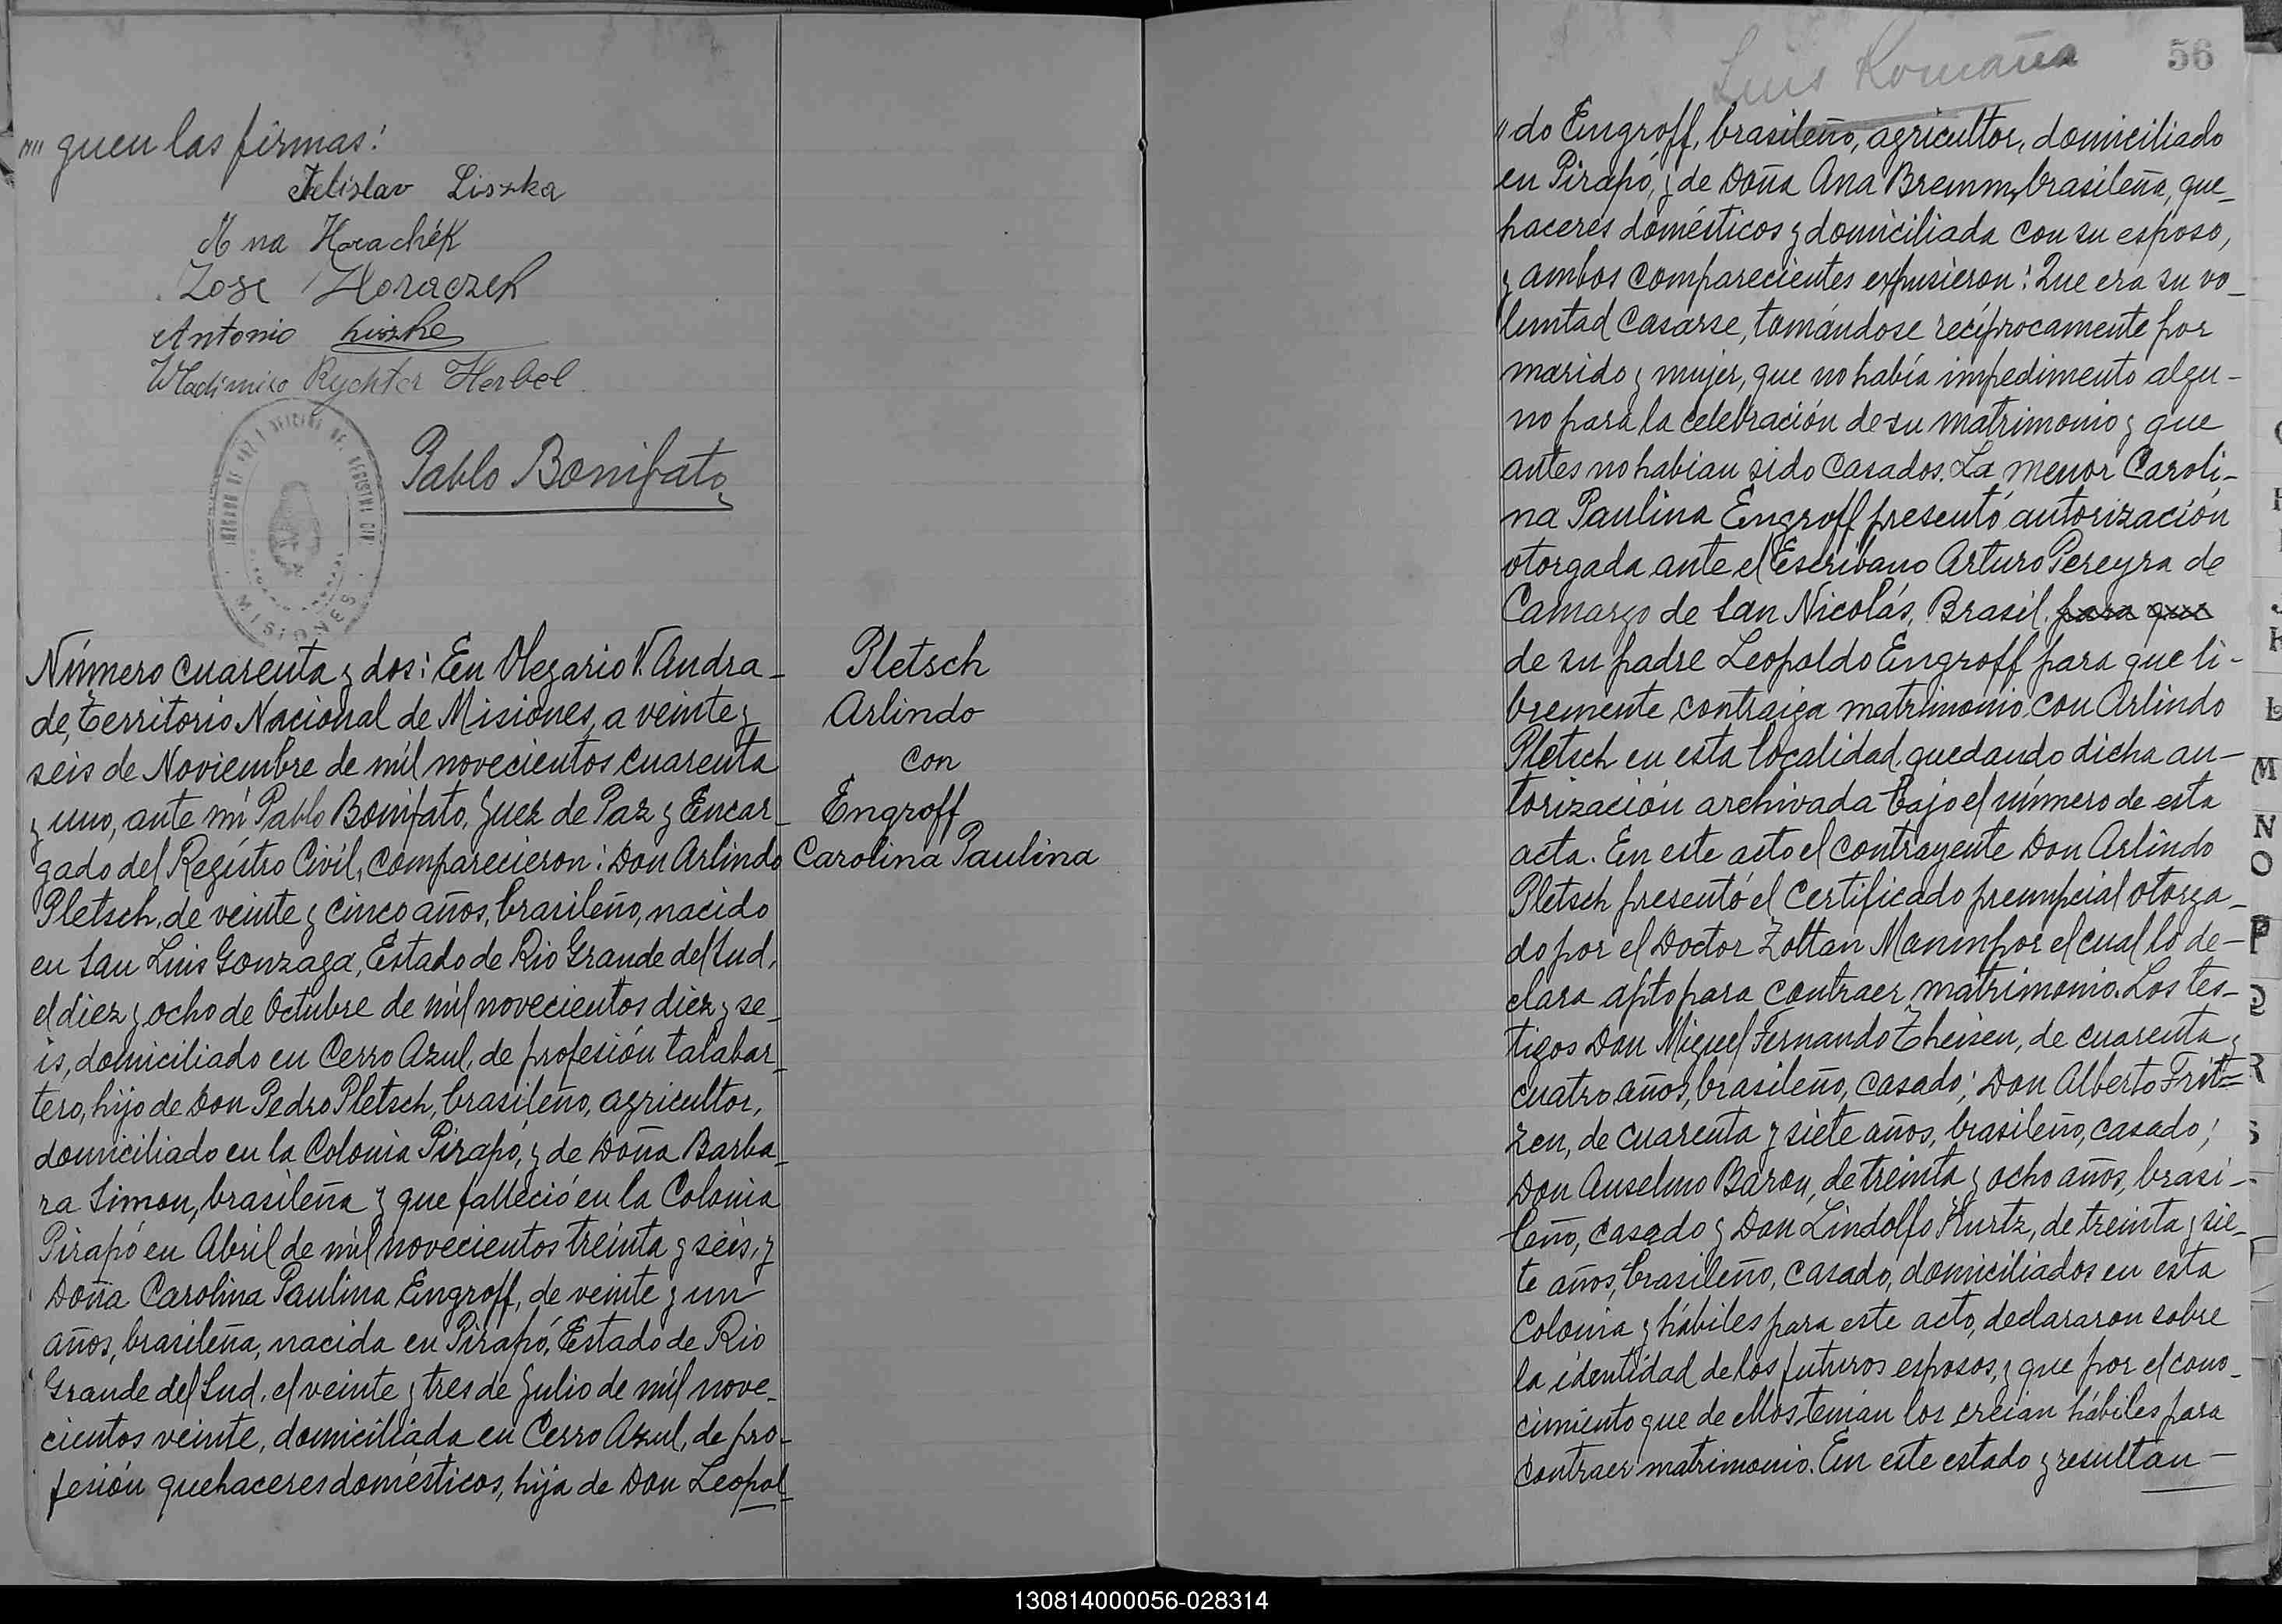 "" guen las firmas:
Liszka
Horachék
Jose Horaczek
Antonio
Wladimiro Rychter Herbel
MISIONES
Pablo Bonifato
Número cuarenta y dos: En Olegario V. Andra-
de, Territorio Nacional de Misiones, a veinte y
seis de Noviembre de mil novecientos cuarenta
y uno, ante mí Pablo Bonifato, Juez de Paz y Encar-
gado del Registro Civil, comparecieron: Don Arlindo
Pletsch, de veinte y cinco años, brasileño, nacido
en San Luis Gonzaga, Estado de Rio Grande del Sud,
el diez y ocho de Octubre de mil novecientos diez y se-
is, domiciliado en Cerro Azul, de profesión talabar-
tero, hijo de Don Pedro Pletsch, brasileño, agricultor,
domiciliado en la Colonia Pirapó, y de Doña Barba-
ra Simon, brasileña y que falleció en la Colonia
Pirapó en Abril de mil novecientos treinta y seis, y
Doña Carolina Paulina Engroff, de veinte y un
años, brasileña, nacida en Pirapó, Estado de Rio
Grande del Sud, el veinte y tres de Julio de mil nove-
cientos veinte, domiciliada en Cerro Azul, de pro-
fesión quehaceres domésticos, hija de Don Leopol-
Pletsch
Arlindo
con
Engroff
Carolina Paulina
Luis Romaña
56
"do Engroff, brasileño, agricultor, domiciliado
en Pirapó, y de Doña Ana Bremm, brasileña, que-
haceres domésticos y domiciliada con su esposo,
y ambos comparecientes expusieron: Que era su vo-
luntad casarse, tomándose recíprocamente por
marido y mujer, que no había impedimento algu-
no para la celebración de su matrimonio y que
antes no habian sido casados. La menor Caroli-
na Paulina Engroff presentó autorización
otorgada ante el Escribano Arturo Pereyra de
Camargo de San Nicolás, Brasil, para que
de su padre Leopoldo Engroff para que li-
bremente contraiga matrimonio con Arlindo
Pletsch en esta localidad, quedando dicha au-
torización archivada bajo el número de esta
acta. En este acto el contrayente Don Arlindo
Pletsch presentó el certificado prenupcial otorga-
do por el Doctor Zoltan Mann por el cual lo de-
clara apto para contraer matrimonio. Los tes-
tigos Don Miguel Fernando Theisen, de cuarenta y
cuatro años, brasileño, casado; Don Alberto Frit=
zen, de cuarenta y siete años, brasileño, casado;
Don Anselmo Baron, de treinta y ocho años, brasi-
leño, casado y Don Lindolfo Kurtz, de treinta y sie-
te años, brasileño, casado, domiciliados en esta
Colonia y hábiles para este acto, declararon sobre
la identidad de los futuros esposos, y que por el cono-
cimiento que de ellos tenían los creían hábiles para
contraer matrimonio. En este estado y resultan-
L
M
N
O
P
Q
R
S
130814000056-028314